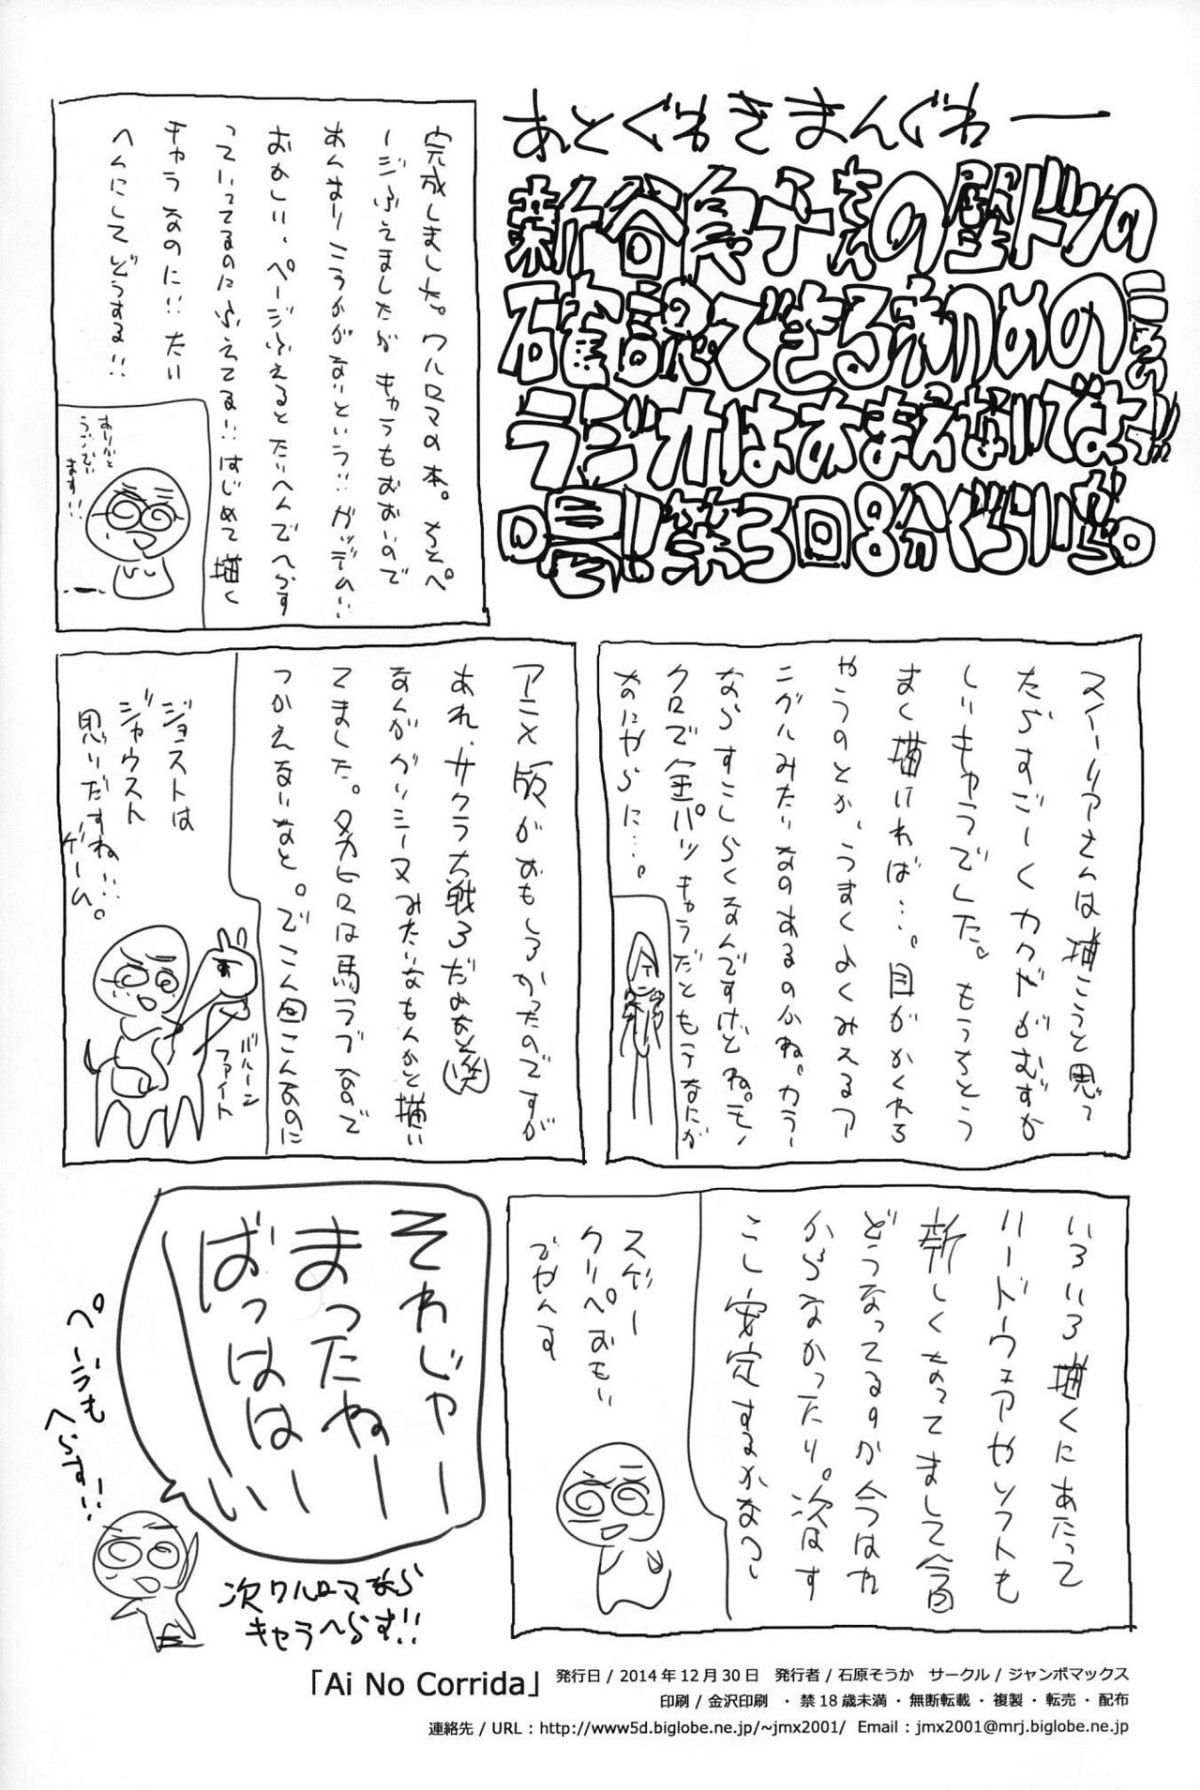 あとぐわきまんぐわー
新谷良子さんの壁ドンの
確認できる初めの
ラジオはおまえないでよっ!!
口喜!!第3回8分ぐらいから。
完成しました。ワルロマの本。ちとペ
ージふえましたが キャラもおおいので
あんまりこうかがないという… ガッデム…
おかしい、ページふえるとたいへんでへらす
っていってるのにふえてる… はじめて描く
キャラなのに… たい
へんにしてどうする…
ありがと
うござい
ます…
スイーリアさんは描こうと思っ
たらすごーくカクゃがむずか
しいキャラでした。もうちとう
まく描ければ…。目がかくれち
ゃうのとか、うまくよくみえるア
ニグルみたいなのあるのかね。カラー
ならすこしらくなんですけどね。モノ
クロで金パツキャラだともうなにが
なにやらに…。
アニメ版がおもしろかったのですが
あれ、サクラ大戦3だよなと(笑)
なんかグリシーヌみたいなもんかと描い
てました。タカヒロは馬ラブなので
つかえないなと。でこん回こんなのに
ジョストは
ジャウスト
思いだすね…
ゲーム。
バルーン
ファイト
いろいろ描くにあたって
ハードウェアやソフトも
新しくなってまして今回
どうなってるのか今はわ
からなかったり。次はす
こし安定するかなっ
スゲー
クリペおもい
でやんす
それじゃー
まったねー
ばっははーい
ページも
へらす!!
次ワルロマなら
キャラへらす!!
「Ai No Corrida」 発行日 / 2014年12月30日 発行者 / 石原そうか サークル / ジャンボマックス
印刷 / 金沢印刷 ・ 禁18歳未満 ・ 無断転載 ・ 複製 ・ 転売 ・ 配布
連絡先 / URL : http://www5d.biglobe.ne.jp/~jmx2001/ Email : jmx2001@mrj.biglobe.ne.jp